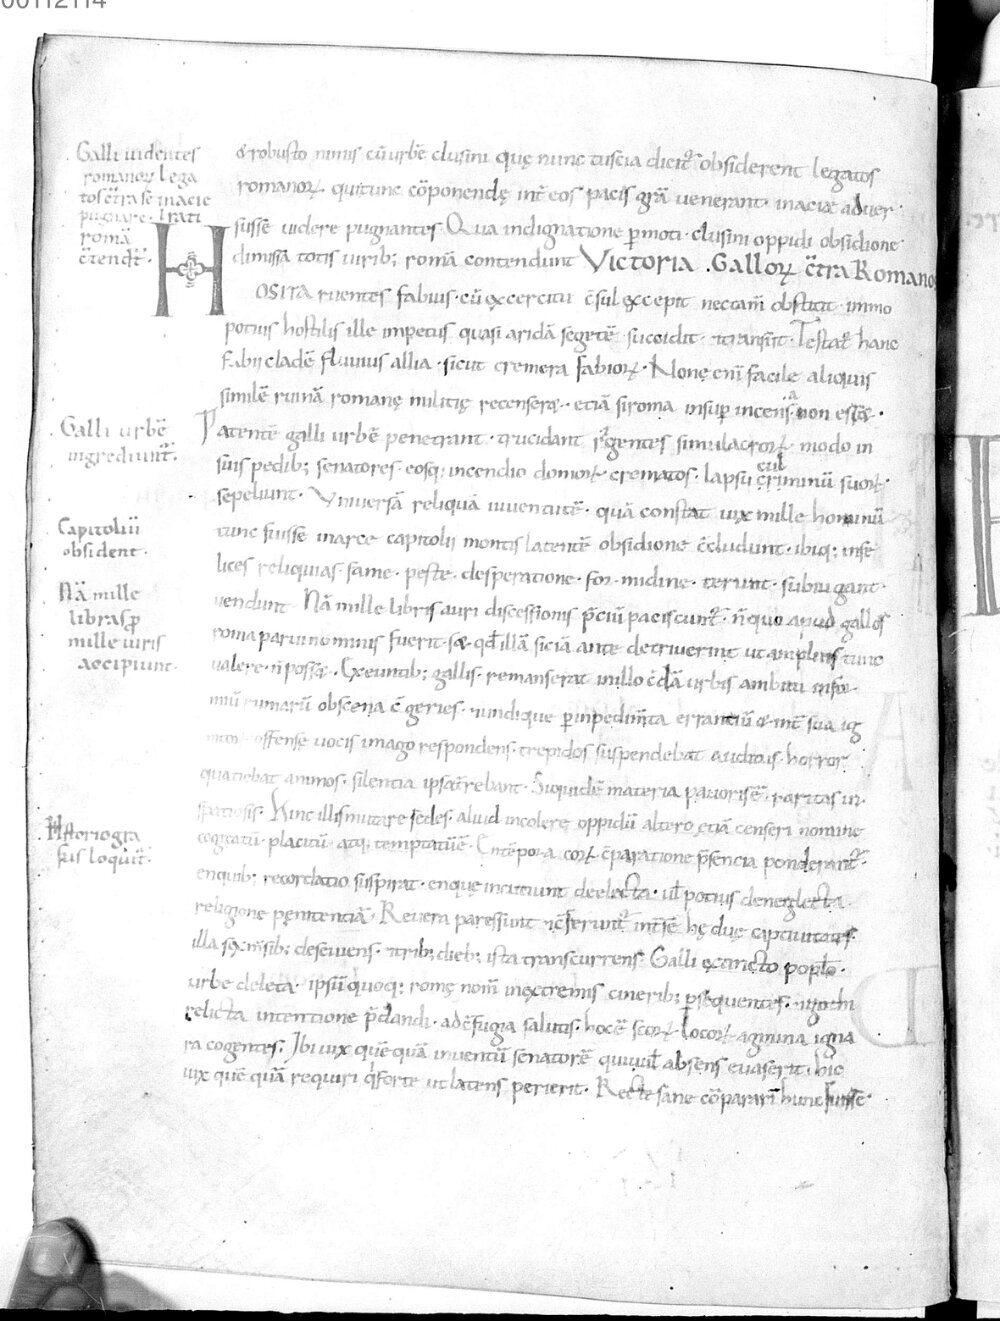 00112114
Galli uidentes
romanoꝝ lega
tos c̄tra se inacie
pugnare · Irati
romā
c̄tendt̄ ·
& robusto nimis cū urbē clusini quę nunc tuscia dicit̄ obsiderent legatos
romanoꝝ · qui tunc cōponendę int̄ eos pacis grā uenerant · inaciæ aduer
sū sē uidere pugnantes Qua indignatione ꝑmoti · clusini oppidi obsidione
dimissa totis uirib; romā contendunt Victoria · Galloꝝ c̄tra Romano
HOS ITA ruentes fabius · cū exercitu c̄sul excepit nec tam̄ obstitit · immo
potius hostilis ille impetus quasi aridā segetē · succidit · & transiit · Testat̄ hanc
fabii cladē fluuius allia · sicut cremera fabioꝝ · Non enī facile aliquis
similē ruinā romanę militię recenseræ · etiā si roma insup̄ incensa non ess& ·
Galli urbē
ingrediunt̄ ·
Patentē galli urbē penetrant · trucidant rigentes simulacroꝝ modo in
suis pedib; senatores · eosq; incendio domoꝝ crematos · lapsu culminū suoꝝ
sepeliunt · Vniuersā reliquā iuuentutē · quā constat uix mille hominū
Capitoliū
obsident ·
tunc fuisse in arce capitolii montis latentē obsidione c̄cludunt · ibiq; infe
lices reliquias fame · peste · desperatione · formidine · terunt · subiugant ·
Nā mille
libras ꝓ
mille uiris
accipiunt ·
uendunt Nā mille libris auri discessionis p̄ciū paciscunt̄ · n̄ quo apud gallos
roma parui nominis fuerit · sæ · qd̄ illā sic iā ante detriuerint ut amplius tunc
ualere · n̄ posset · Exeuntib; gallis · remanserat in illo c̄dā urbis ambitu infor
miū ruinarū obscena c̄geries · & undique ꝑ inpedim̄ta errantiū & int̄ sua ig
nota · offense uocis imago respondens · trepidos suspendebat auditus · horror
quatiebat animos · silentia ipsa t̄rebant · Siquidē materia pauoris ē · raritas in
spatiosis · Hinc illis mutare sedes · aliud incolere oppidū altero etiā censeri nomine
Historiogra
fus loquit̄ ·
cogitatū · placitū · atq; temptatū ē · En tēpora coꝝ c̄paratione p̄sencia ponderant̄ ·
en quib; recordatio suspirat · en que incutiunt de electa · ul̄ potius de neglecta
religione pęnitentiā · Reuera pares sunt & c̄ferunt̄ int̄ sē hę duę captiuitates ·
illa sex m̄sib; deseuiens · & trib; dieb; ista transcurrens · Galli exctincto poplo ·
urbe deleta · ipsū quoq; romę nom̄ in extremis cinerib; ꝑsequentes · & gothi
relicta intentione p̄dandi · ad c̄fugia salutis · hoc ē scoꝝ locoꝝ agmina igna
ra cogentes · Ibi uix quē quā inuentū senatorē qui uul absens euaserit · hic
uix quē quā requiri q̄ forte ut latens perierit · Recte sane cōpararī hunc fuisse